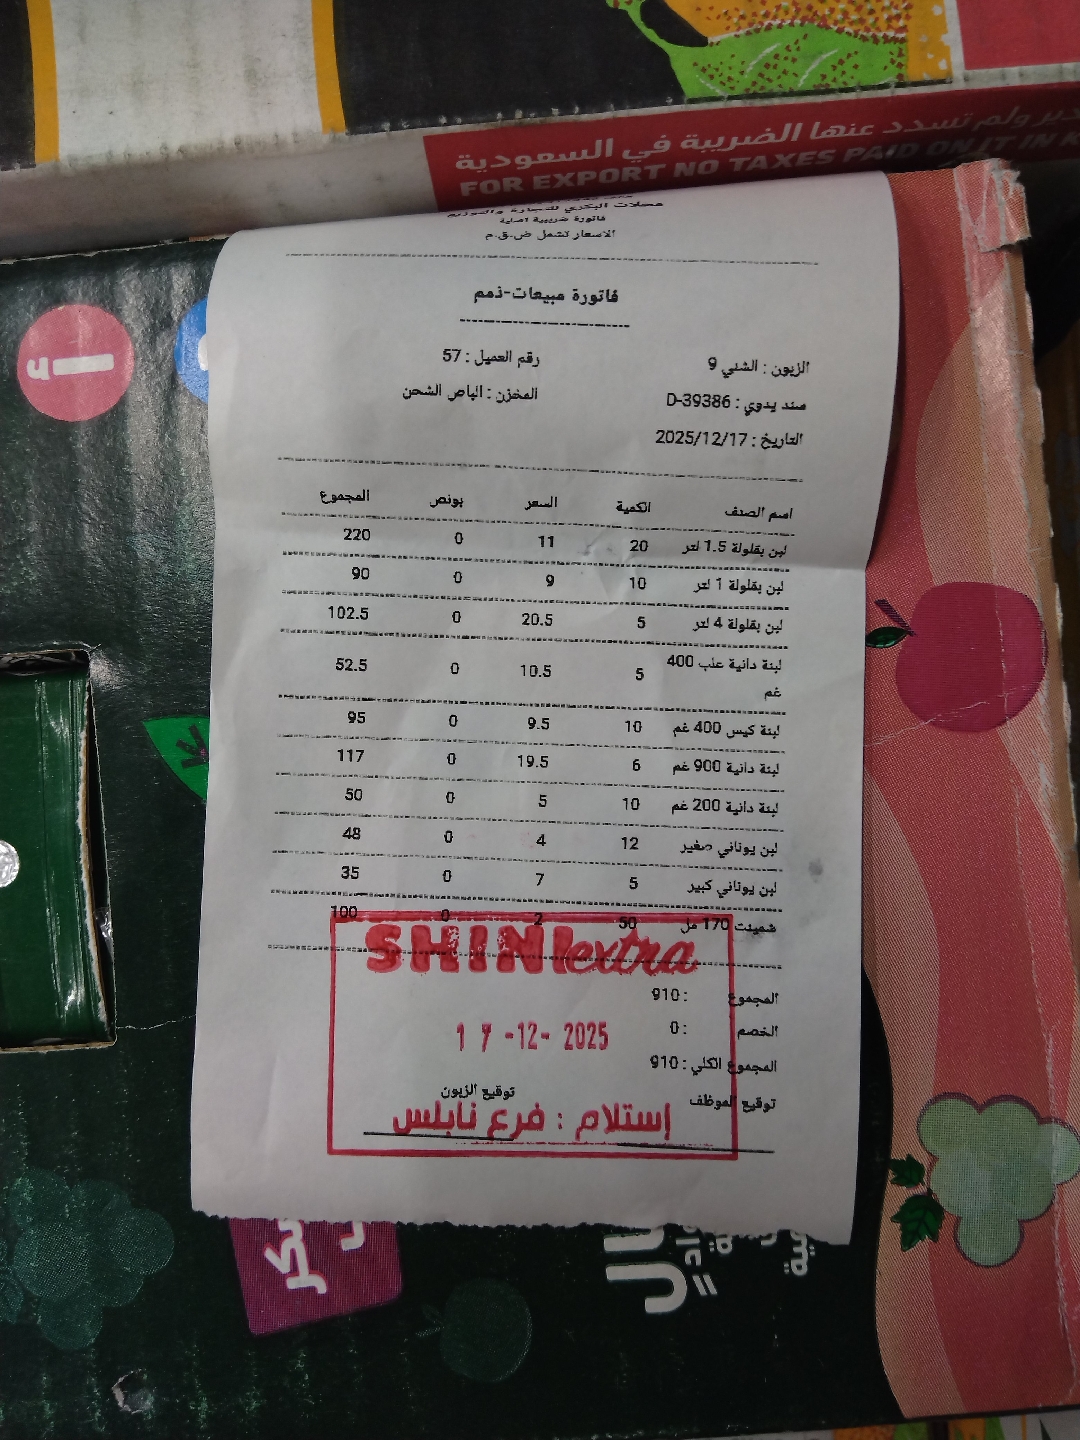 ولم تسدد عنها الضريبة في السعودية
FOR EXPORT NO TAXES PAID ON IT IN
محلات البكري للتجارة والتوزيع
فاتورة ضريبية اصلية
الاسعار تشمل ض.ق.م
فاتورة مبيعات-ذمم
الزبون : الشني 9 رقم العميل : 57
سند يدوي : D-39386 المخزن : الباص الشحن
التاريخ : 2025/12/17
اسم الصنف الكمية السعر بونص المجموع
لبن بقلولة 1.5 لتر 20 11 0 220
لبن بقلولة 1 لتر 10 9 0 90
لبن بقلولة 4 لتر 5 20.5 0 102.5
لبنة دانية علب 400 غم 5 10.5 0 52.5
لبنة كيس 400 غم 10 9.5 0 95
لبنة دانية 900 غم 6 19.5 0 117
لبنة دانية 200 غم 10 5 0 50
لبن يوناني صغير 12 4 0 48
لبن يوناني كبير 5 7 0 35
شمينت 170 مل 50 2 0 100
SHINI extra
المجموع : 910
الخصم : 0
17 -12- 2025
المجموع الكلي : 910
توقيع الموظف توقيع الزبون
إستلام : فرع نابلس